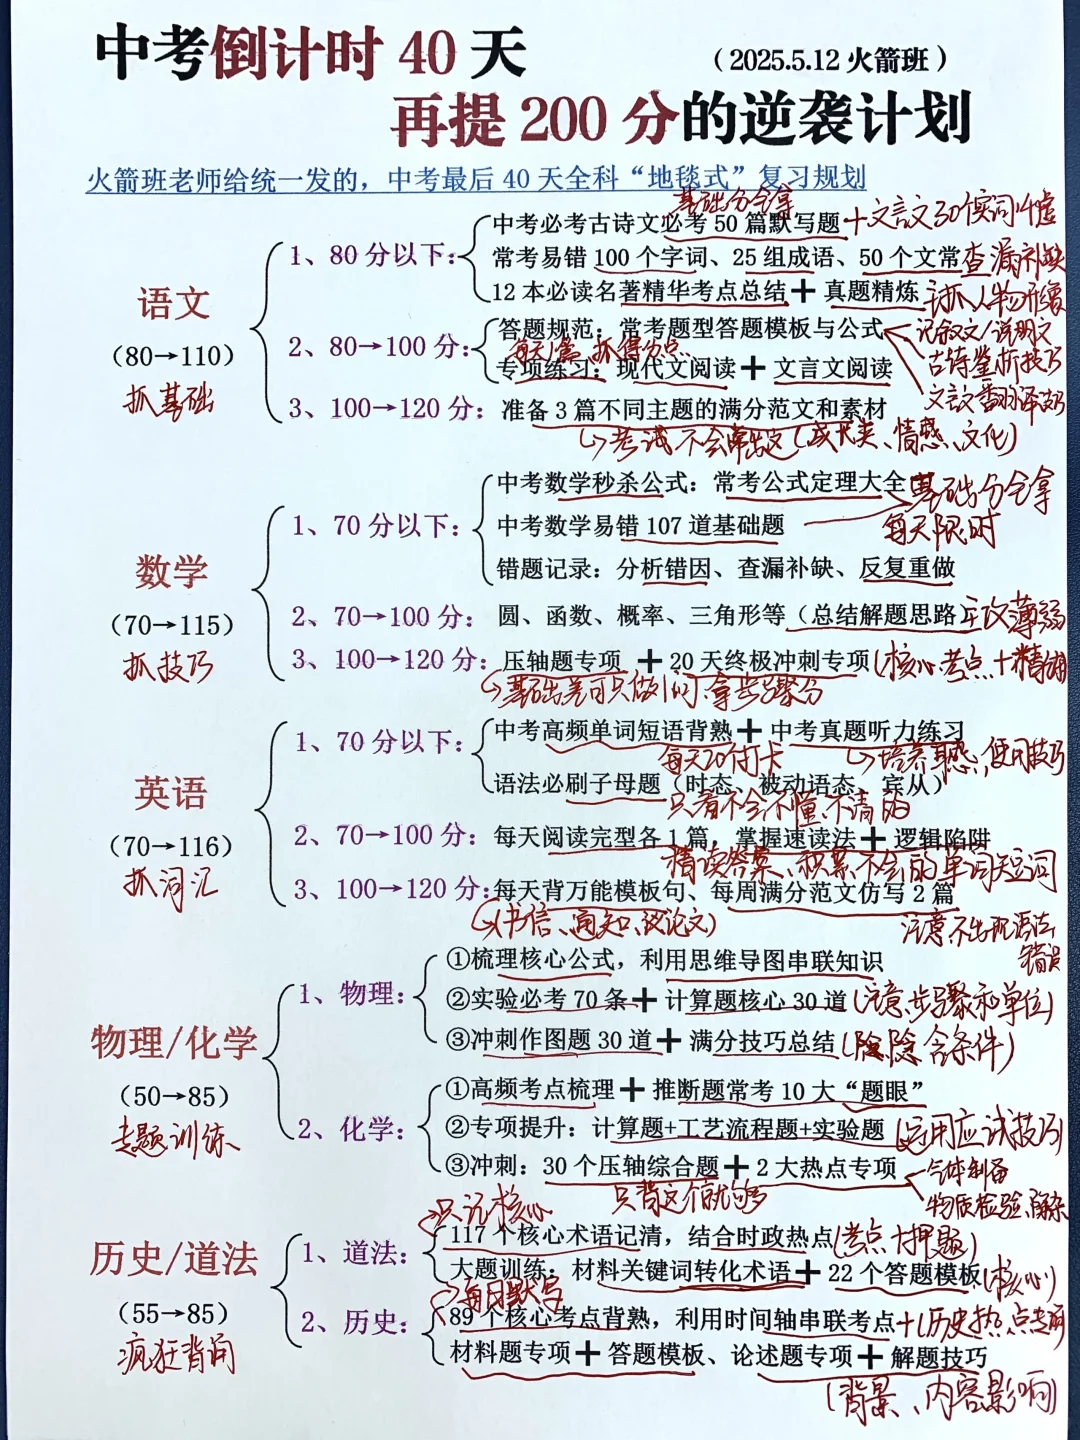 中考倒计时 40 天
（2025.5.12 火箭班）
再提 200 分的逆袭计划
火箭班老师给统一发的，中考最后 40 天全科“地毯式”复习规划
基础分全拿
语文
（80→110）
抓基础
1、80 分以下：
中考必考古诗文必考 50 篇默写题 十文言文30个实词
常考易错 100 个字词、25 组成语、50 个文常 查漏补缺
12 本必读名著精华考点总结＋真题精炼 主抓人物形象
2、80→100 分：
答题规范：常考题型答题模板与公式 记叙文/说明文
每天1篇、抓得分点
古诗鉴析技巧
专项练习：现代文阅读＋文言文阅读
文言文翻译技巧
3、100→120 分：准备 3 篇不同主题的满分范文和素材
考试不会常出这(成长类、情感、文化)
数学
（70→115）
抓技巧
1、70 分以下：
中考数学秒杀公式：常考公式定理大全 基础分全拿
中考数学易错 107 道基础题 每天限时
错题记录：分析错因、查漏补缺、反复重做
2、70→100 分：圆、函数、概率、三角形等（总结解题思路）主攻薄弱
3、100→120 分：压轴题专项 ＋20 天终极冲刺专项(核心考点十精翎
基础差可只做1问、拿步骤分
英语
（70→116）
抓词汇
1、70 分以下：
中考高频单词短语背熟＋中考真题听力练习
每天20个打卡
培养耳感、使用技巧
语法必刷子母题（时态、被动语态、宾从）
只看不会不懂不清的
2、70→100 分：每天阅读完型各 1 篇，掌握速读法＋逻辑陷阱
精读答案、积累不会的单词短词
3、100→120 分：每天背万能模板句、每周满分范文仿写 2 篇
(书信、通知、议论文)
注意不出现语法
错误
物理/化学
（50→85）
专题训练
1、物理：
①梳理核心公式，利用思维导图串联知识
②实验必考 70 条＋计算题核心 30 道(注意步骤和单位)
③冲刺作图题 30 道＋满分技巧总结(隐含条件)
2、化学：
①高频考点梳理＋推断题常考 10 大“题眼”
②专项提升：计算题+工艺流程题+实验题(运用应试技巧)
③冲刺：30 个压轴综合题＋2 大热点专项 气体制备
只背这个就够
物质检验、除杂
历史/道法
（55→85）
疯狂背诵
只记核心
1、道法：
117 个核心术语记清，结合时政热点(考点十押题)
大题训练：材料关键词转化术语＋22 个答题模板(核心)
每日默写
2、历史：
89 个核心考点背熟，利用时间轴串联考点+(历史热点专项
材料题专项＋答题模板、论述题专项＋解题技巧
(背景、内容影响)